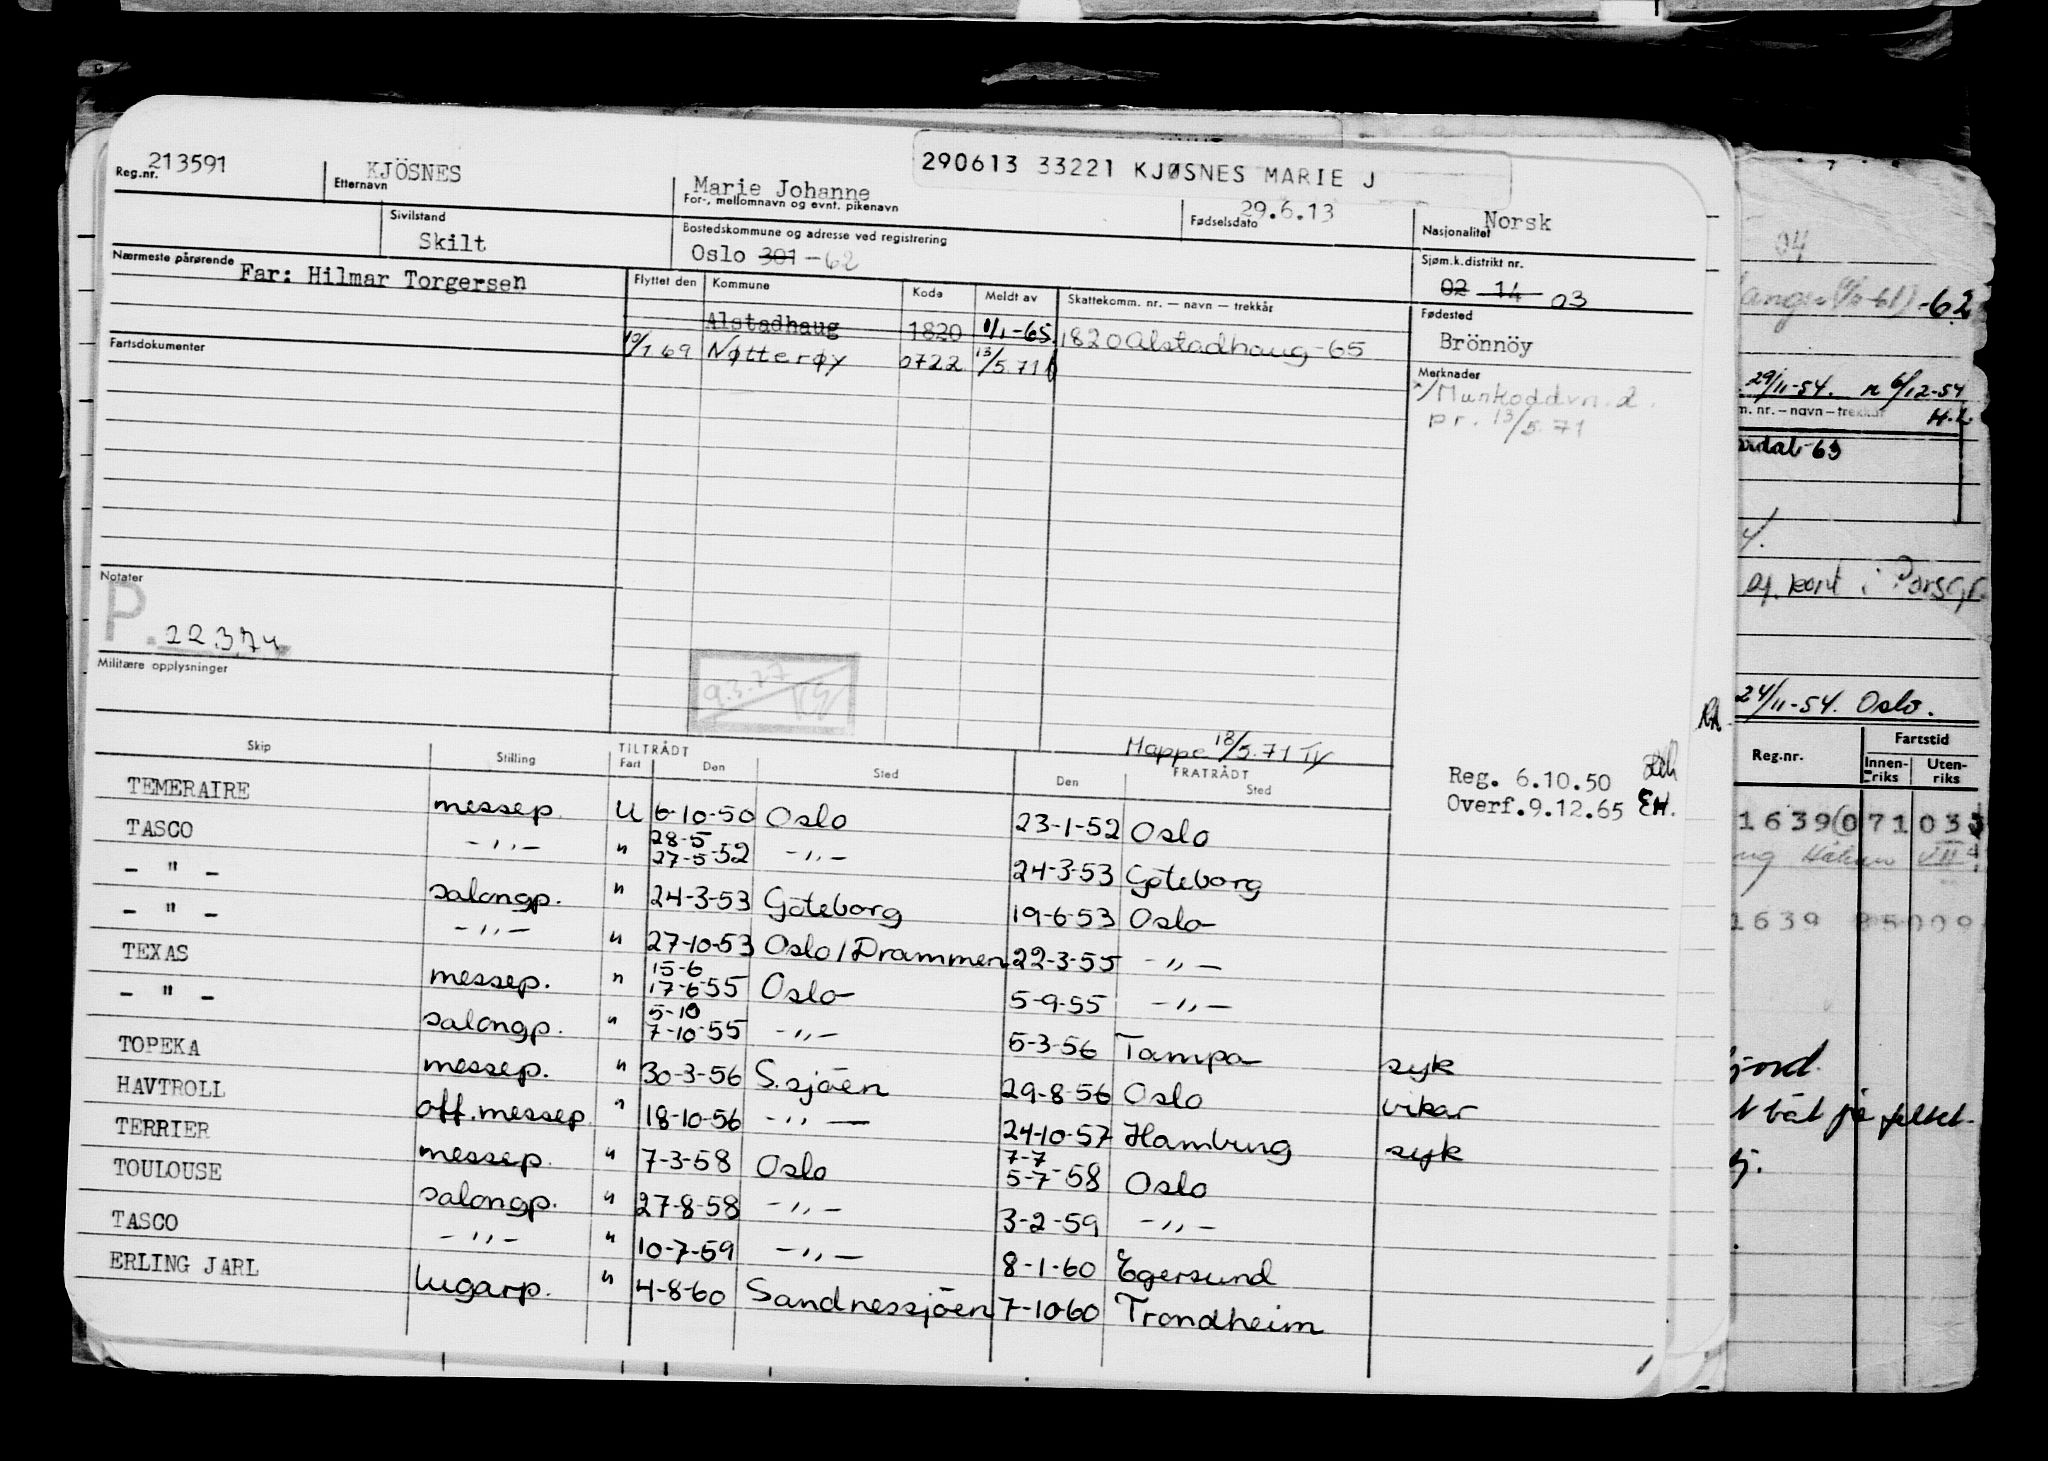 290613 33221 KJØSNES MARIE J
Reg.nr. 213591 Etternavn KJÖSNES For-, mellomnavn og evnt. pikenavn Marie Johanne Fødselsdato 29.6.13 Nasjonalitet Norsk
Sivilstand Skilt Bostedskommune og adresse ved registrering Oslo 301 -62 Sjøm.k.distrikt nr. 02 14 03
Nærmeste pårørende Far: Hilmar Torgersen
Flyttet den Kommune Kode Meldt av Skattekomm. nr. — navn — trekkår Fødested
Alstadhaug 1820 1/1-65. 1820 Alstadhaug-65 Brönnöy
Fartsdokumenter 10/1 69 Nøtterøy 0722 13/5.71 Merknader
pr. 13/5.71
Notater
P. 22.3.74
Militære opplysninger
9.3.77
Mappe 18/5.71 Ty
Reg. 6.10.50
Overf.9.12.65 EH.
Skip Stilling TILTRÅDT Fart Den Sted FRATRÅDT Den Sted
TEMERAIRE messep. U 6-10-50 Oslo 23-1-52 Oslo
TASCO -,,- " 28-5 27-5-52 -,,- 24-3-53 Göteborg
- " - salongp. " 24-3-53 Göteborg 19-6-53 Oslo
- " - -,,- " 27-10-53 Oslo/Drammen 22-3-55 -,,-
TEXAS messep. " 15-6 17-6-55 Oslo 5-9-55 -,,-
- " - salongp. " 5-10 7-10-55 -,,- 5-3-56 Tampa syk
TOPEKA messep. " 30-3-56 S.sjöen 29-8-56 Oslo vikar
HAVTROLL off.messep. " 18-10-56 -,,- 24-10-57 Hamburg syk
TERRIER messep. " 7-3-58 Oslo 7-7 5-7-58 Oslo
TOULOUSE salongp. " 27-8-58 -,,- 3-2-59 -,,-
TASCO -,,- " 10-7-59 -,,- 8-1-60 Egersund
ERLING JARL lugarp. " 4-8-60 Sandnessjöen 7-10-60 Trondheim
04
-62
29/11-54. 6/12-54
m. nr. — navn — trekkår H.L.
-63
kont i Porsgr.
24/11-54. Oslo.
Reg.nr. Fartstid
Innenriks Utenriks
1639 071 033
1639
jord.
båt på feltet.